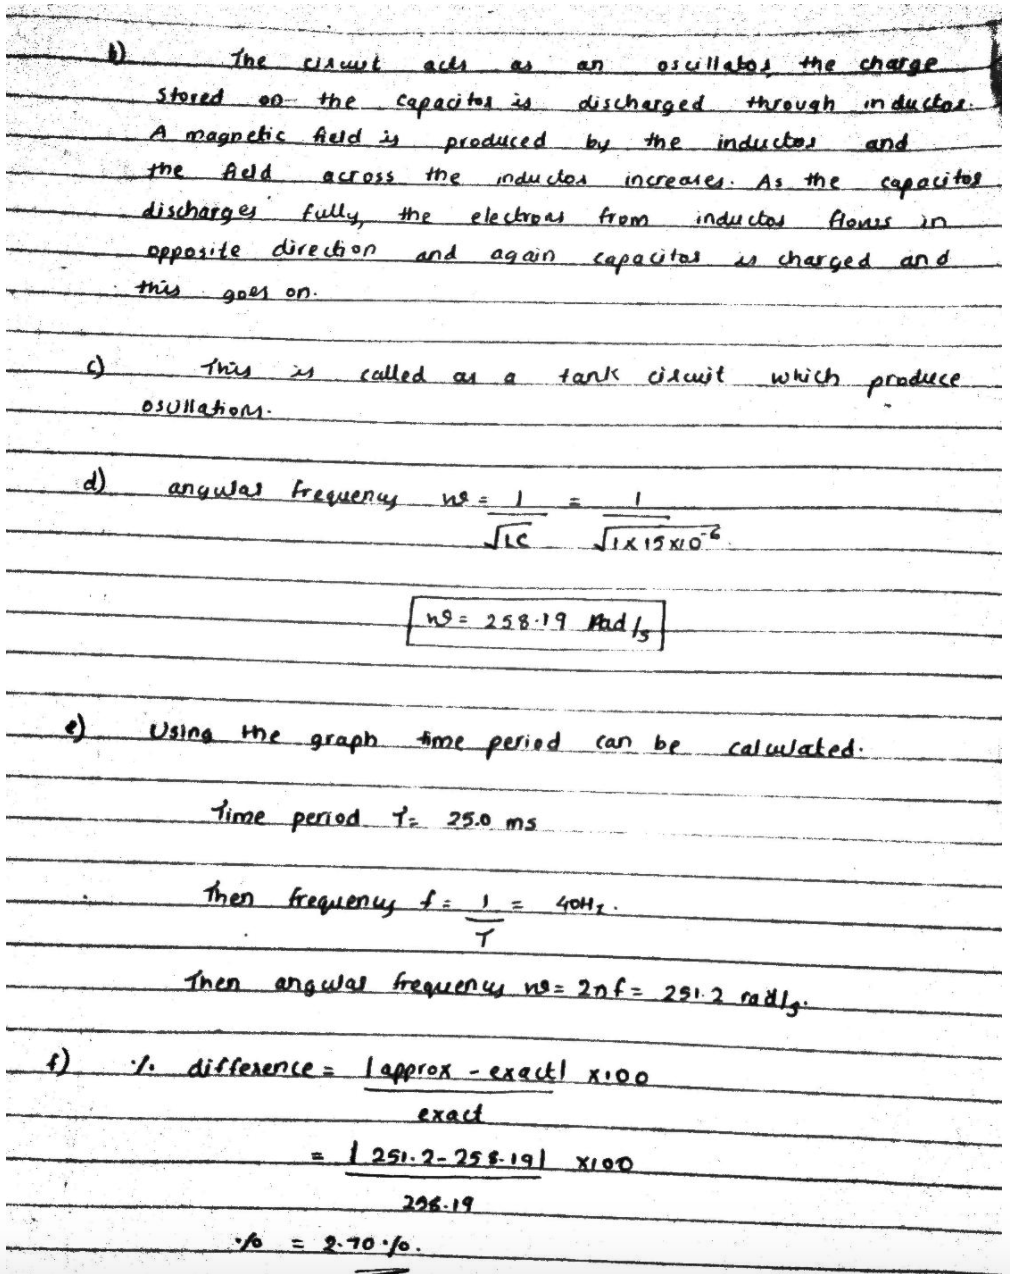 b) The circuit acts as an oscillator the charge
stored on the capacitor is discharged through inductor.
A magnetic field is produced by the inductor and
the field across the inductor increases. As the capacitor
discharges fully, the electrons from inductor flows in
opposite direction and again capacitor is charged and
this goes on.
c) This is called as a tank circuit which produce
oscillations.
d) angular frequency ω = 1/√LC = 1/√1×15×10⁻⁶
ω = 258.19 Rad/s
e) Using the graph time period can be calculated.
Time period T = 25.0 ms
Then frequency f = 1/T = 40Hz.
Then angular frequency ω = 2πf = 251.2 rad/s.
f) % difference = |approx - exact| ×100
exact
= |251.2-258.19| ×100
258.19
% = 2.70%.